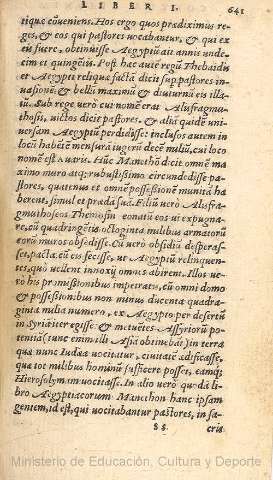 LIBER I. 641
tiquæ cōueniens. Hos ergo quos prædiximus re-
ges, & eos qui pastores vocabantur, & qui ex
eis fuere, obtinuisse Aegyptū ait annis unde-
cim et quingētis. Post hæc autē regū Thebaidis
et Aegypti reliquæ factā dicit sup pastores in-
uasionē, & bellū maximū & diuturnū eis illa-
tū. Sub rege verò cui nomē erat Alisfragmu-
thosis, victos dicit pastores, & aliā quidē uni-
uersam Aegyptū perdidisse: inclusos autem in
locū habētē mensurā iugerū decē miliū, cui loco
nomē est Auaris. Hūc Manethō dicit omnē ma
ximo muro atq; robustissimo circundedisse pa-
stores, quatenus et omnē possessionē munitā ha
berent, simul et prædā suā. Filiū verò Alisfra-
gmuthoseos Themosin conatū eos ui expugna-
re, cū quadringētis octoginta milibus armatorū
eorū muros obsedisse. Cū verò obsidiū desperas-
set, pactū cū eis fecisse, ut Aegyptū relinquen-
tes, quò uellent innoxij omnes abirent. Illos ve-
rò his promissionibus impetratis, cū omni domo
& possessionibus non minus ducenta quadra-
ginta milia numero, ex Aegypto per desertū
in Syriā iter egisse & metuētes Assyriorū po-
tentiā (tunc enim illi Asiā obtinebāt) in terra
quæ nunc Iudæa vocatur, ciuitatē ædificasse,
quæ tot milibus hominū sufficere posset, eamq;
Hierosolymam uocitasse. In alio verò quodā li-
bro Aegyptiacorum Manethon hanc ipsam
gentem, id est, qui vocitabantur pastores, in sa-
ss cris
Ministerio de Educación, Cultura y Deporte